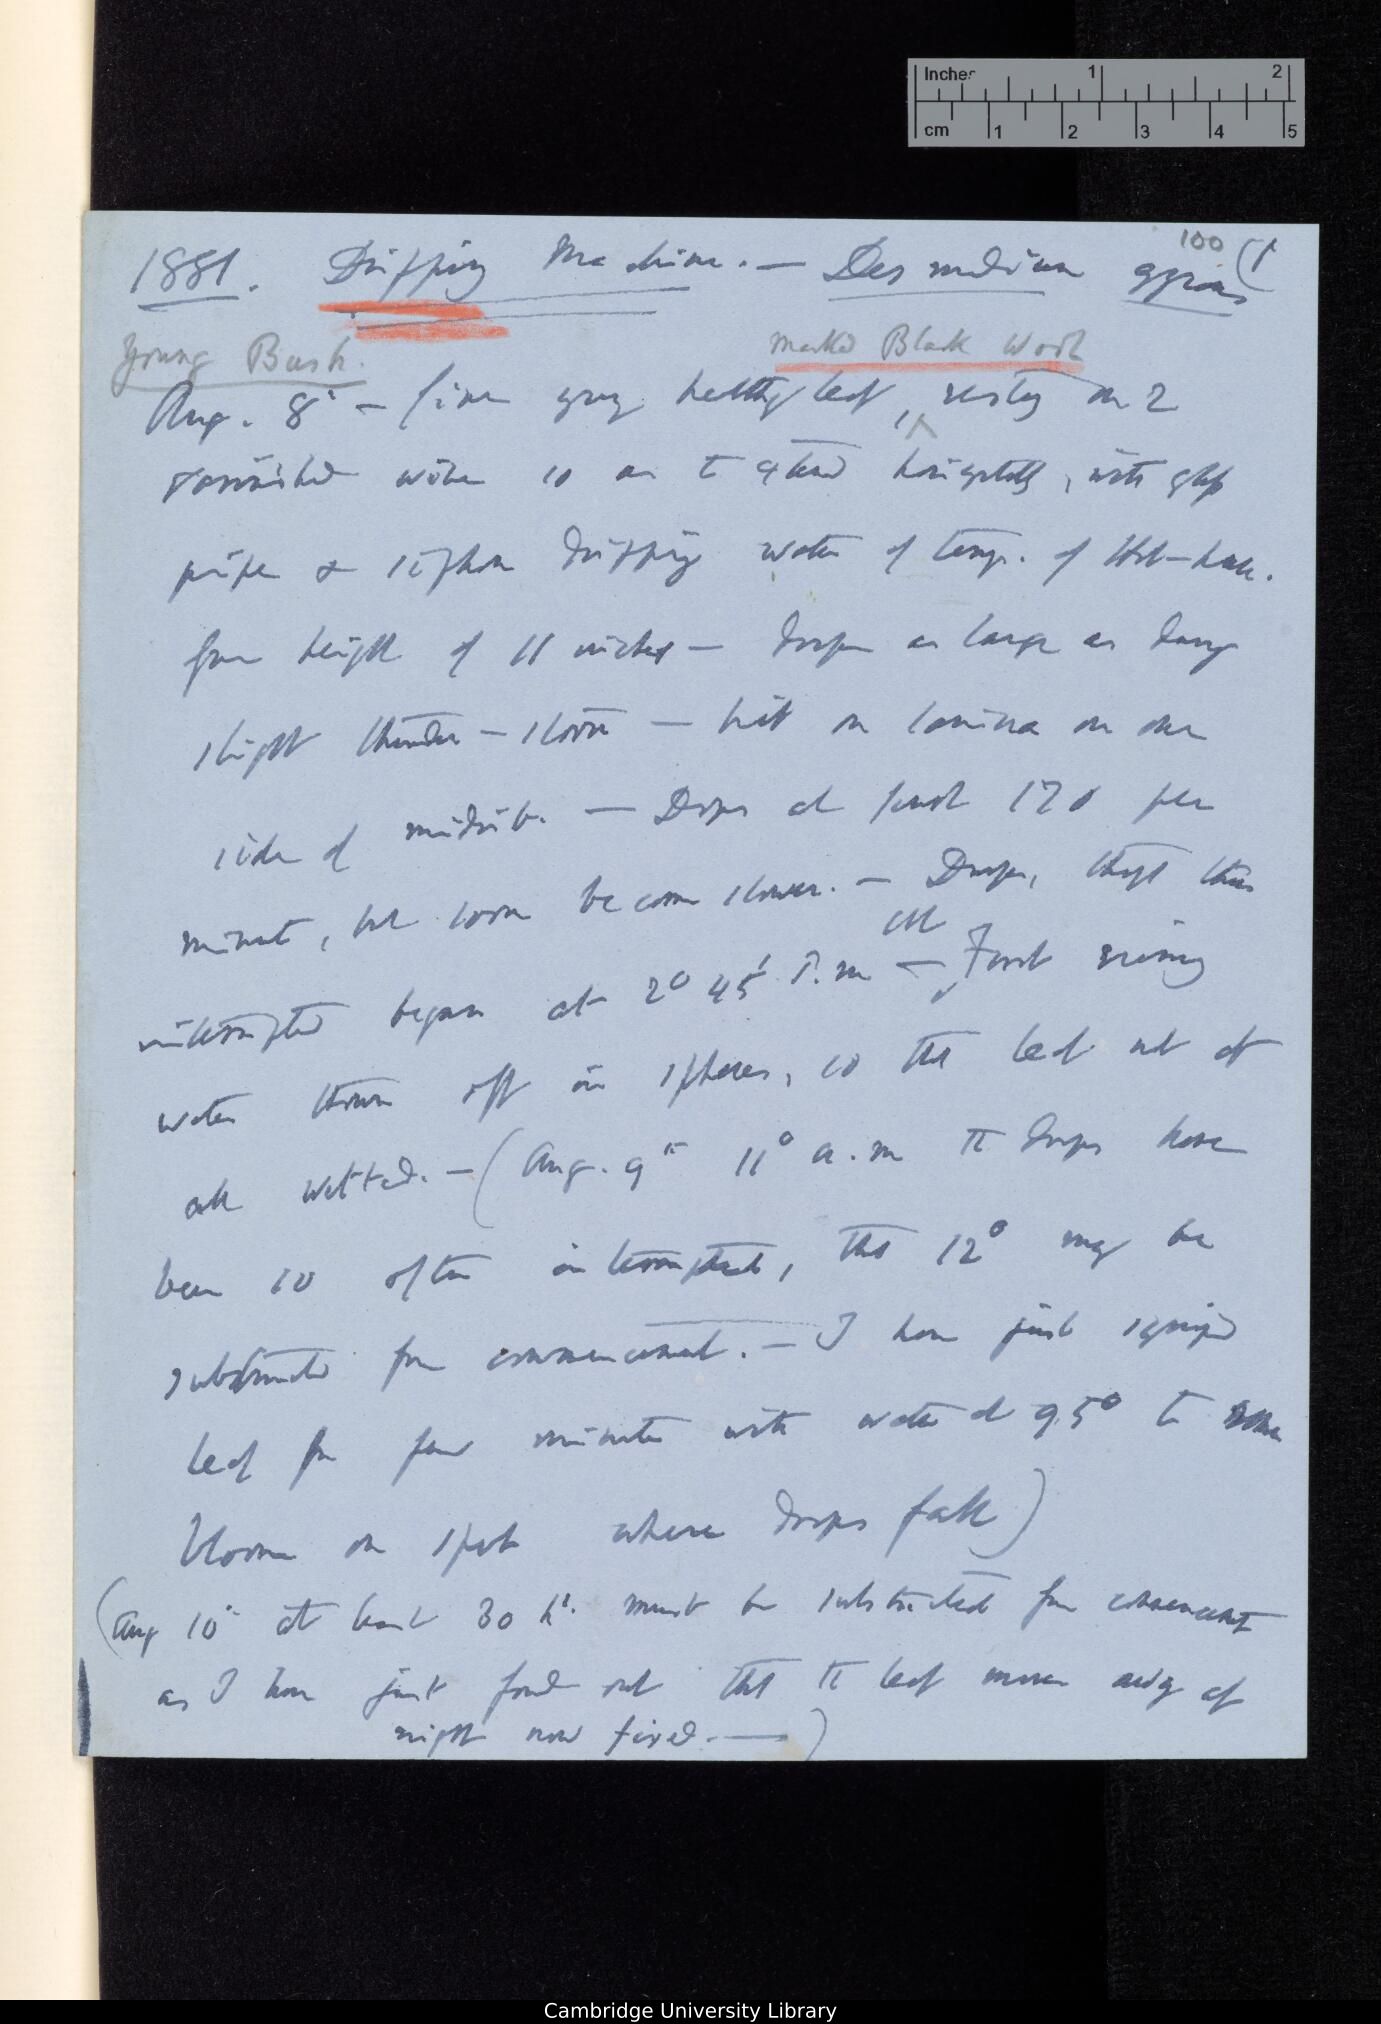 Inches 1 2
cm 1 2 3 4 5
100 (1
1881. Dripping Machine. — Desmodium gyrans
Young Bush. marked Black Wool
Aug. 8th — fine young healthy leaf, resting on 2
varnished wires so as to stand horizontally, with glass
pipe & syphon dripping water of temp. of Hot-house.
from height of 11 inches — drops as large as during
slight thunder-storm — hit on lamina on one
side of midrib. — Drops at first 170 per
minute, but soon become slower. — Drops, thus
interrupted began at 2° 45' P.m — At first
water thrown off in spheres, so that leaf not at
all wetted. — (Aug. 9th 11° a.m the drops have
been so often interrupted, that 12° may be
subtracted from commencement. — I have just syringed
leaf for few minutes with water at 95° to remove
bloom on spot where drops fall)
(Aug 10th at least 30 hrs. must be substracted from commencement
as I have just found out that the leaf moves away at
night now fixed. — )
Cambridge University Library